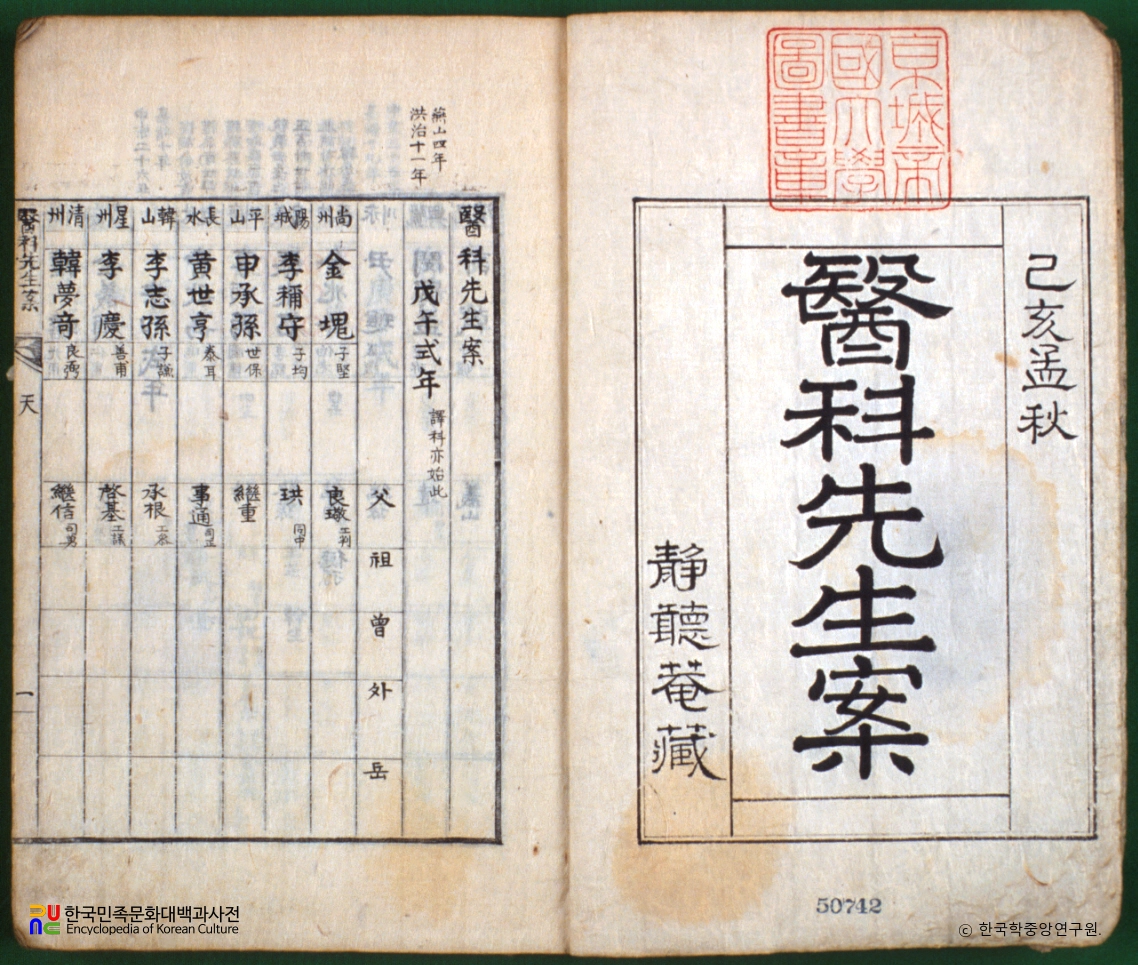 京城帝
國大學
圖書章
己亥孟秋
醫科先生案
靜聽菴藏
50742
ⓒ 한국학중앙연구원.
燕山四年
洪治十一年
醫科先生案
戊午式年 譯科亦始此
父 祖 曾 外 岳
尙州 金塊 子堅 良璥 工判
陽城 李稱守 子均 珙 同中
平山 申承孫 世保 繼重
長水 黃世亨 泰耳 事通 同正
韓山 李志孫 子謙 承根 工參
星州 李慶 善甫 啓基 工議
淸州 韓夢奇 良弼 繼信 司勇
醫科先生案 天 一
한국민족문화대백과사전
Encyclopedia of Korean Culture